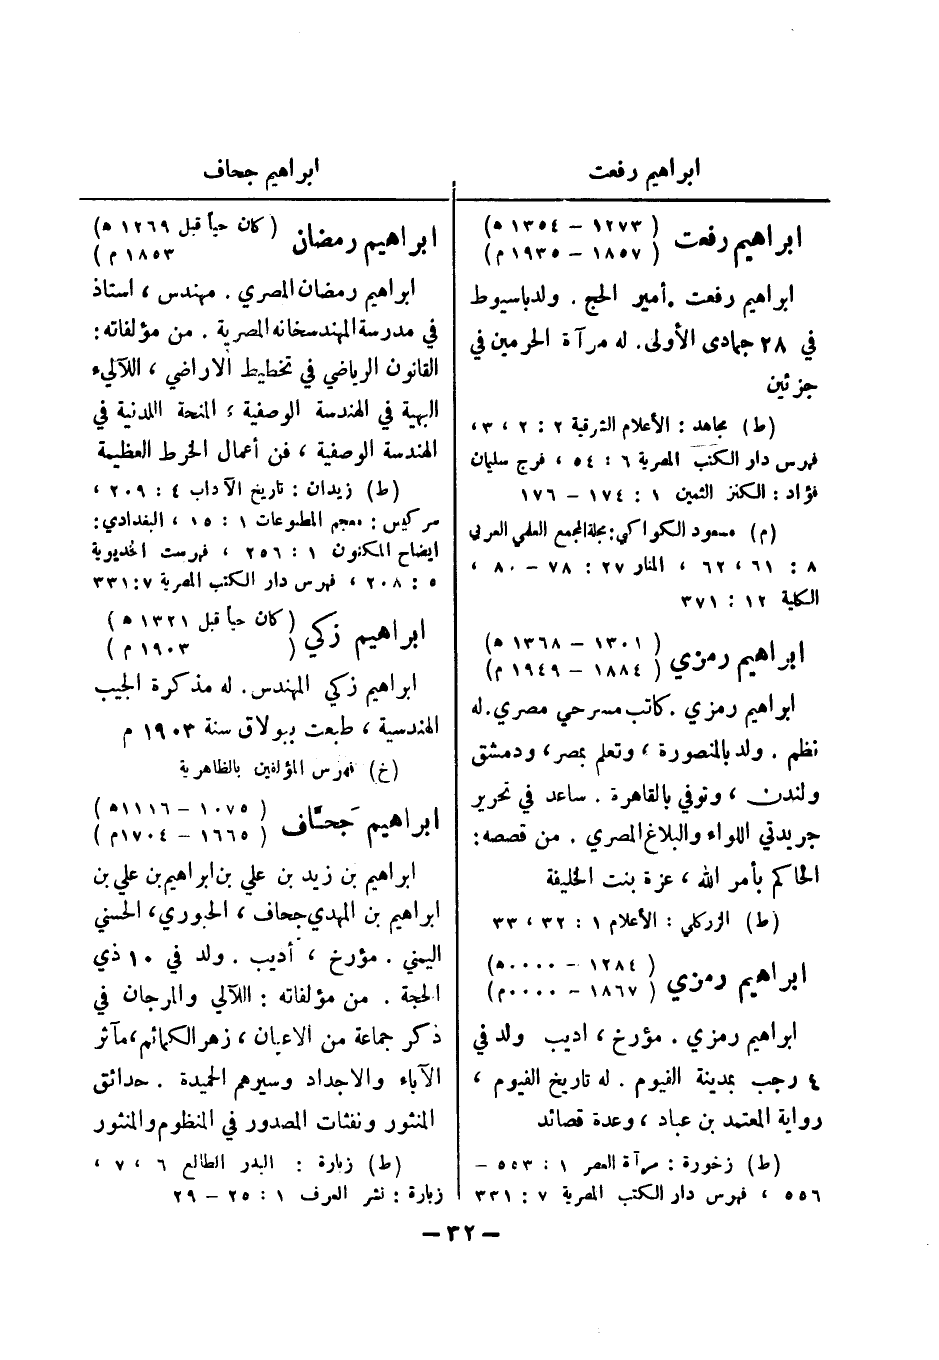 ابراهيم رفعت
ابراهيم رفعت
( ١٢٧٣ – ١٣٥٤ ه)
( ١٨٥٧ – ١٩٣٥ م)
ابراهيم رفعت . أمير الحج . ولد باسيوط
في ٢٨ جمادى الأولى. له مرآة الحرمين في
جزئين
(ط) مجاهد : الأعلام الشرقية ٢ : ٢ ، ٣ ،
فهرس دار الكتب المصرية ٦ : ٥٤ ، فرج سليمان
فؤاد : الكنز الثمين ١ : ١٧٤ – ١٧٦
(م) مسعود الكواكبي : مجلة المجمع العلمي العربي
٨ : ٦١ ، ٦٢ ، المنار ٢٧ : ٧٨ – ٨٠ ،
الكلية ١٢ : ٣٧١
ابراهيم رمزي
( ١٣٠١ – ١٣٦٨ ه)
( ١٨٨٤ – ١٩٤٩ م)
ابراهيم رمزي . كاتب مسرحي مصري. له
نظم . ولد بالمنصورة ، وتعلم بمصر ، ودمشق
ولندن ، وتوفي بالقاهرة . ساعد في تحرير
جريدتي اللواء والبلاغ المصري . من قصصه :
الحاكم بأمر الله ، عزة بنت الخليفة
(ط) الزركلي : الأعلام ١ : ٣٢ ، ٣٣
ابراهيم رمزي
( ١٢٨٤ – ٠٠٠٠ه)
( ١٨٦٧ – ٠٠٠٠م)
ابراهيم رمزي . مؤرخ ، اديب ولد في
٤ رجب بمدينة الفيوم . له تاريخ الفيوم ،
رواية المعتمد بن عباد ، وعدة قصائد
(ط) زخورة : مرآة العصر ١ : ٥٥٣ –
٥٥٦ ، فهرس دار الكتب المصرية ٧ : ٣٣١
ابراهيم جحاف
ابراهيم رمضان
( كان حياً قبل ١٢٦٩ ه)
١٨٥٣ م )
ابراهيم رمضان المصري . مهندس ، استاذ
في مدرسة المهندسخانه المصرية . من مؤلفاته :
القانون الرياضي في تخطيط الاراضي ، اللآليء
البهية في الهندسة الوصفية ، المنحة اللدنية في
الهندسة الوصفية ، فن أعمال الخرط العظيمة
(ط) زيدان : تاريخ الآداب ٤ : ٢٠٩ ،
سركيس : معجم المطبوعات ١ : ١٥ ، البغدادي :
ايضاح المكنون ١ : ٢٥٦ ، فهرست الخديوية
٥ : ٢٠٨ ، فهرس دار الكتب المصرية ٧ : ٣٣١
ابراهيم زكي
( كان حياً قبل ١٣٢١ ه )
( ١٩٠٣ م )
ابراهيم زكي المهندس. له مذكرة الجيب
الهندسية ، طبعت ببولاق سنة ١٩٠٣ م
(خ) فهرس المؤلفين بالظاهرية
ابراهيم جَحّاف
( ١٠٧٥ – ١١١٦ه )
( ١٦٦٥ – ١٧٠٤م )
ابراهيم بن زيد بن علي بن ابراهيم بن علي بن
ابراهيم بن المهدي جحاف ، الحبوري ، الحسني
اليمني . مؤرخ ، أديب . ولد في ١٠ ذي
الحجة . من مؤلفاته : اللآلي والمرجان في
ذكر جماعة من الاعيان ، زهر الكمائم ، مآثر
الآباء والاجداد وسيرهم الحميدة . حدائق
المنثور ونفثات المصدور في المنظوم والمنثور
(ط) زبارة : البدر الطالع ٦ ، ٧ ،
زبارة : نشر العرف ١ : ٢٥ – ٢٩
– ٣٢ –